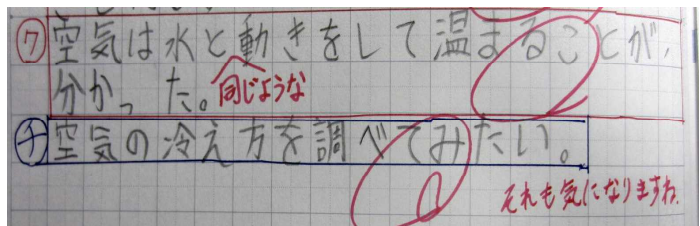 ワ 空気は水と動きをして温まることが、
同じような
分かった。
チ 空気の冷え方を調べてみたい。
それも気になりますね。